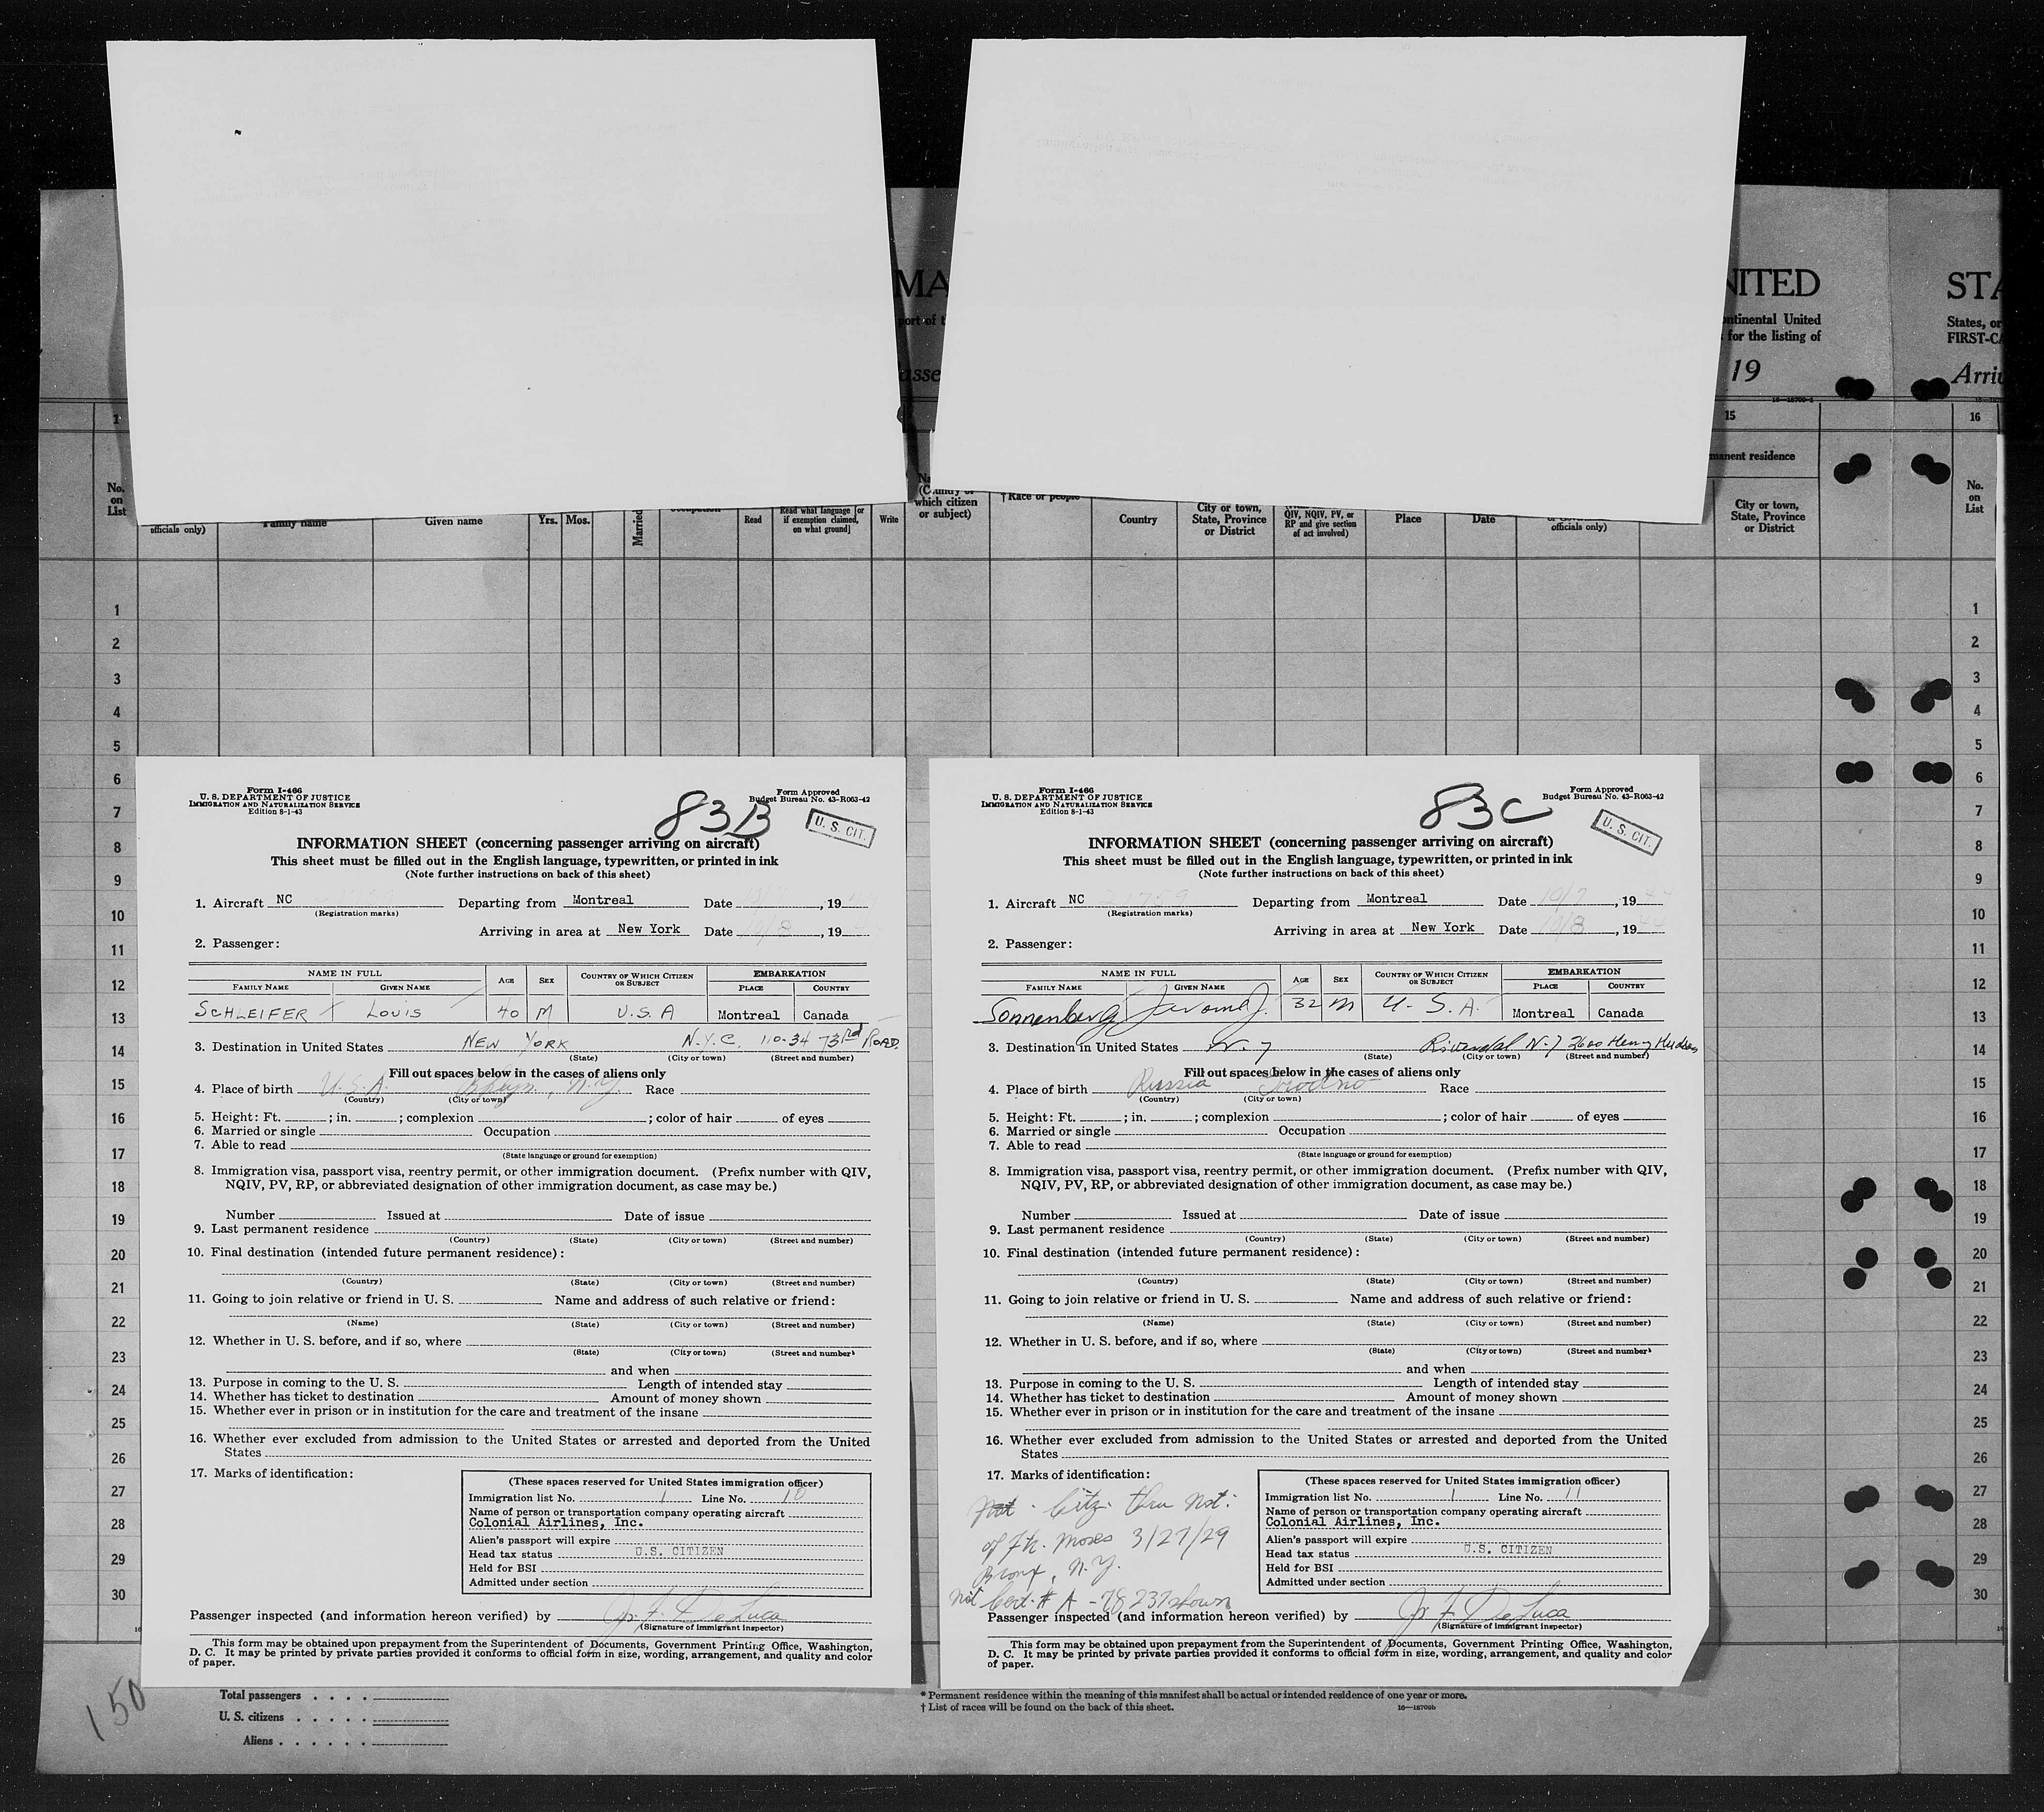 MA
NITED
STA
port of t
ontinental United
for the listing of
States, or
FIRST-CA
asse
19
Arriv
15
16
manent residence
No.
on
List
officials only)
Family name
Given name
Yrs. Mos.
Married
Read
Read what language [or
if exemption claimed,
on what ground]
Write
(Country of
which citizen
or subject)
† Race or people
Country
City or town,
State, Province
or District
QIV, NQIV, PV, or
RP and give section
of act involved)
Place
Date
officials only)
City or town,
State, Province
or District
No.
on
List
1
2
3
4
5
6
7
8
9
10
11
12
13
14
15
16
17
18
19
20
21
22
23
24
25
26
27
28
29
30
Form I-466
U. S. DEPARTMENT OF JUSTICE
IMMIGRATION AND NATURALIZATION SERVICE
Edition 8-1-43
83B
Form Approved
Budget Bureau No. 43-R063-42
U. S. CIT.
INFORMATION SHEET (concerning passenger arriving on aircraft)
This sheet must be filled out in the English language, typewritten, or printed in ink
(Note further instructions on back of this sheet)
1. Aircraft NC Departing from Montreal Date , 19
(Registration marks)
Arriving in area at New York Date 10/8, 19
2. Passenger:
NAME IN FULL AGE SEX COUNTRY OF WHICH CITIZEN OR SUBJECT EMBARKATION
FAMILY NAME GIVEN NAME PLACE COUNTRY
SCHLEIFER LOUIS 40 M U.S.A Montreal Canada
3. Destination in United States NEW YORK N.Y.C. 110-34 73rd ROAD
(State) (City or town) (Street and number)
Fill out spaces below in the cases of aliens only
4. Place of birth U.S.A. Bklyn, N.Y. Race
(Country) (City or town)
5. Height: Ft. ; in. ; complexion ; color of hair of eyes
6. Married or single Occupation
7. Able to read
(State language or ground for exemption)
8. Immigration visa, passport visa, reentry permit, or other immigration document. (Prefix number with QIV,
NQIV, PV, RP, or abbreviated designation of other immigration document, as case may be.)
Number Issued at Date of issue
9. Last permanent residence
(Country) (State) (City or town) (Street and number)
10. Final destination (intended future permanent residence):
(Country) (State) (City or town) (Street and number)
11. Going to join relative or friend in U. S. Name and address of such relative or friend:
(Name) (State) (City or town) (Street and number)
12. Whether in U. S. before, and if so, where
(State) (City or town) (Street and number)
and when
13. Purpose in coming to the U. S. Length of intended stay
14. Whether has ticket to destination Amount of money shown
15. Whether ever in prison or in institution for the care and treatment of the insane
16. Whether ever excluded from admission to the United States or arrested and deported from the United
States
17. Marks of identification:
(These spaces reserved for United States immigration officer)
Immigration list No. 1 Line No. 10
Name of person or transportation company operating aircraft
Colonial Airlines, Inc.
Alien's passport will expire
Head tax status U.S. CITIZEN
Held for BSI
Admitted under section
Passenger inspected (and information hereon verified) by Jr. F. DeLuca
(Signature of immigrant inspector)
This form may be obtained upon prepayment from the Superintendent of Documents, Government Printing Office, Washington,
D. C. It may be printed by private parties provided it conforms to official form in size, wording, arrangement, and quality and color
of paper.
Form I-466
U. S. DEPARTMENT OF JUSTICE
IMMIGRATION AND NATURALIZATION SERVICE
Edition 8-1-43
83C
Form Approved
Budget Bureau No. 43-R063-42
U. S. CIT.
INFORMATION SHEET (concerning passenger arriving on aircraft)
This sheet must be filled out in the English language, typewritten, or printed in ink
(Note further instructions on back of this sheet)
1. Aircraft NC 21759 Departing from Montreal Date 10/7, 1944
(Registration marks)
Arriving in area at New York Date 10/8, 1944
2. Passenger:
NAME IN FULL AGE SEX COUNTRY OF WHICH CITIZEN OR SUBJECT EMBARKATION
FAMILY NAME GIVEN NAME PLACE COUNTRY
Sonnenberg Jerome J. 32 M U. S. A. Montreal Canada
3. Destination in United States N. Y Riverdal N. Y 2600 Henry Hudson
(State) (City or town) (Street and number)
Fill out spaces below in the cases of aliens only
4. Place of birth Russia Grodno Race
(Country) (City or town)
5. Height: Ft. ; in. ; complexion ; color of hair of eyes
6. Married or single Occupation
7. Able to read
(State language or ground for exemption)
8. Immigration visa, passport visa, reentry permit, or other immigration document. (Prefix number with QIV,
NQIV, PV, RP, or abbreviated designation of other immigration document, as case may be.)
Number Issued at Date of issue
9. Last permanent residence
(Country) (State) (City or town) (Street and number)
10. Final destination (intended future permanent residence):
(Country) (State) (City or town) (Street and number)
11. Going to join relative or friend in U. S. Name and address of such relative or friend:
(Name) (State) (City or town) (Street and number)
12. Whether in U. S. before, and if so, where
(State) (City or town) (Street and number)
and when
13. Purpose in coming to the U. S. Length of intended stay
14. Whether has ticket to destination Amount of money shown
15. Whether ever in prison or in institution for the care and treatment of the insane
16. Whether ever excluded from admission to the United States or arrested and deported from the United
States
17. Marks of identification:
Nat. Citz. thru Nat:
of Fh. Moses 3/27/29
Bronx, N.Y.
Nat Cert. # A -78237 shown
(These spaces reserved for United States immigration officer)
Immigration list No. 1 Line No. 11
Name of person or transportation company operating aircraft
Colonial Airlines, Inc.
Alien's passport will expire
Head tax status U.S. CITIZEN
Held for BSI
Admitted under section
Passenger inspected (and information hereon verified) by Jr. F. DeLuca
(Signature of immigrant inspector)
This form may be obtained upon prepayment from the Superintendent of Documents, Government Printing Office, Washington,
D. C. It may be printed by private parties provided it conforms to official form in size, wording, arrangement, and quality and color
of paper.
1
2
3
4
5
6
7
8
9
10
11
12
13
14
15
16
17
18
19
20
21
22
23
24
25
26
27
28
29
30
150
Total passengers . . . .
U. S. citizens . . . . .
Aliens . . . . . .
* Permanent residence within the meaning of this manifest shall be actual or intended residence of one year or more.
† List of races will be found on the back of this sheet.
16—18709b